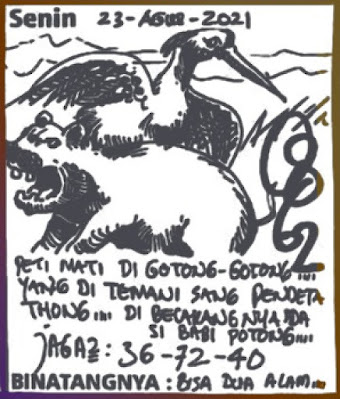 Senin 23-AGUS-2021
PETI MATI DI GOTONG-GOTONG....
YANG DI TEMANI SANG PENDETA
THONG.... DI BELAKANG NYA ADA
SI BABI POTONG....
JAGA2: 36-72-40
BINATANGNYA : BISA DUA ALAM....